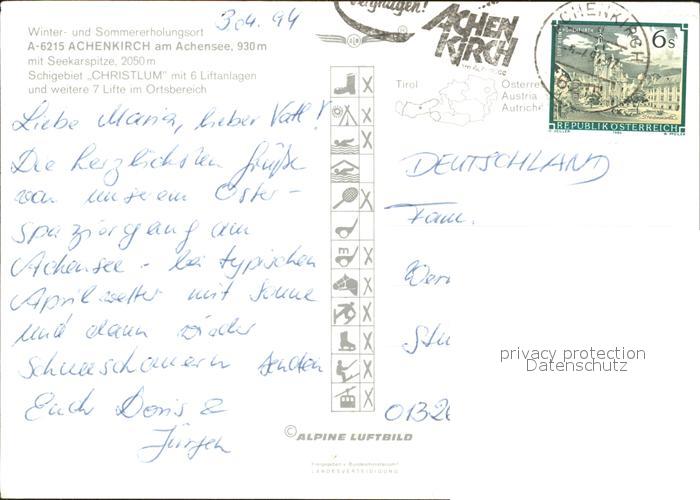 3.4.94
Winter- und Sommererholungsort
A-6215 ACHENKIRCH am Achensee, 930 m
mit Seekarspitze, 2050 m
Schigebiet „CHRISTLUM" mit 6 Liftanlagen
und weitere 7 Lifte im Ortsbereich
Liebe Maria, lieber Vati!
Die herzlichsten Grüße
von unserem Oster-
spaziergang am
Achensee - bei typischen
Aprilwetter mit Sonne
und dann wieder
Schneeschauern senden
Euch Doris &
Jürgen
ACHEN
KIRCH
Tirol
Österre
Austria
Autrich
ACHENKIRCH
6 S
REPUBLIK ÖSTERREICH
DEUTSCHLAND
Fam.
Wern
Stu
0132
privacy protection
Datenschutz
© ALPINE LUFTBILD
Freigegeben v. Bundesministerium f.
LANDESVERTEIDIGUNG